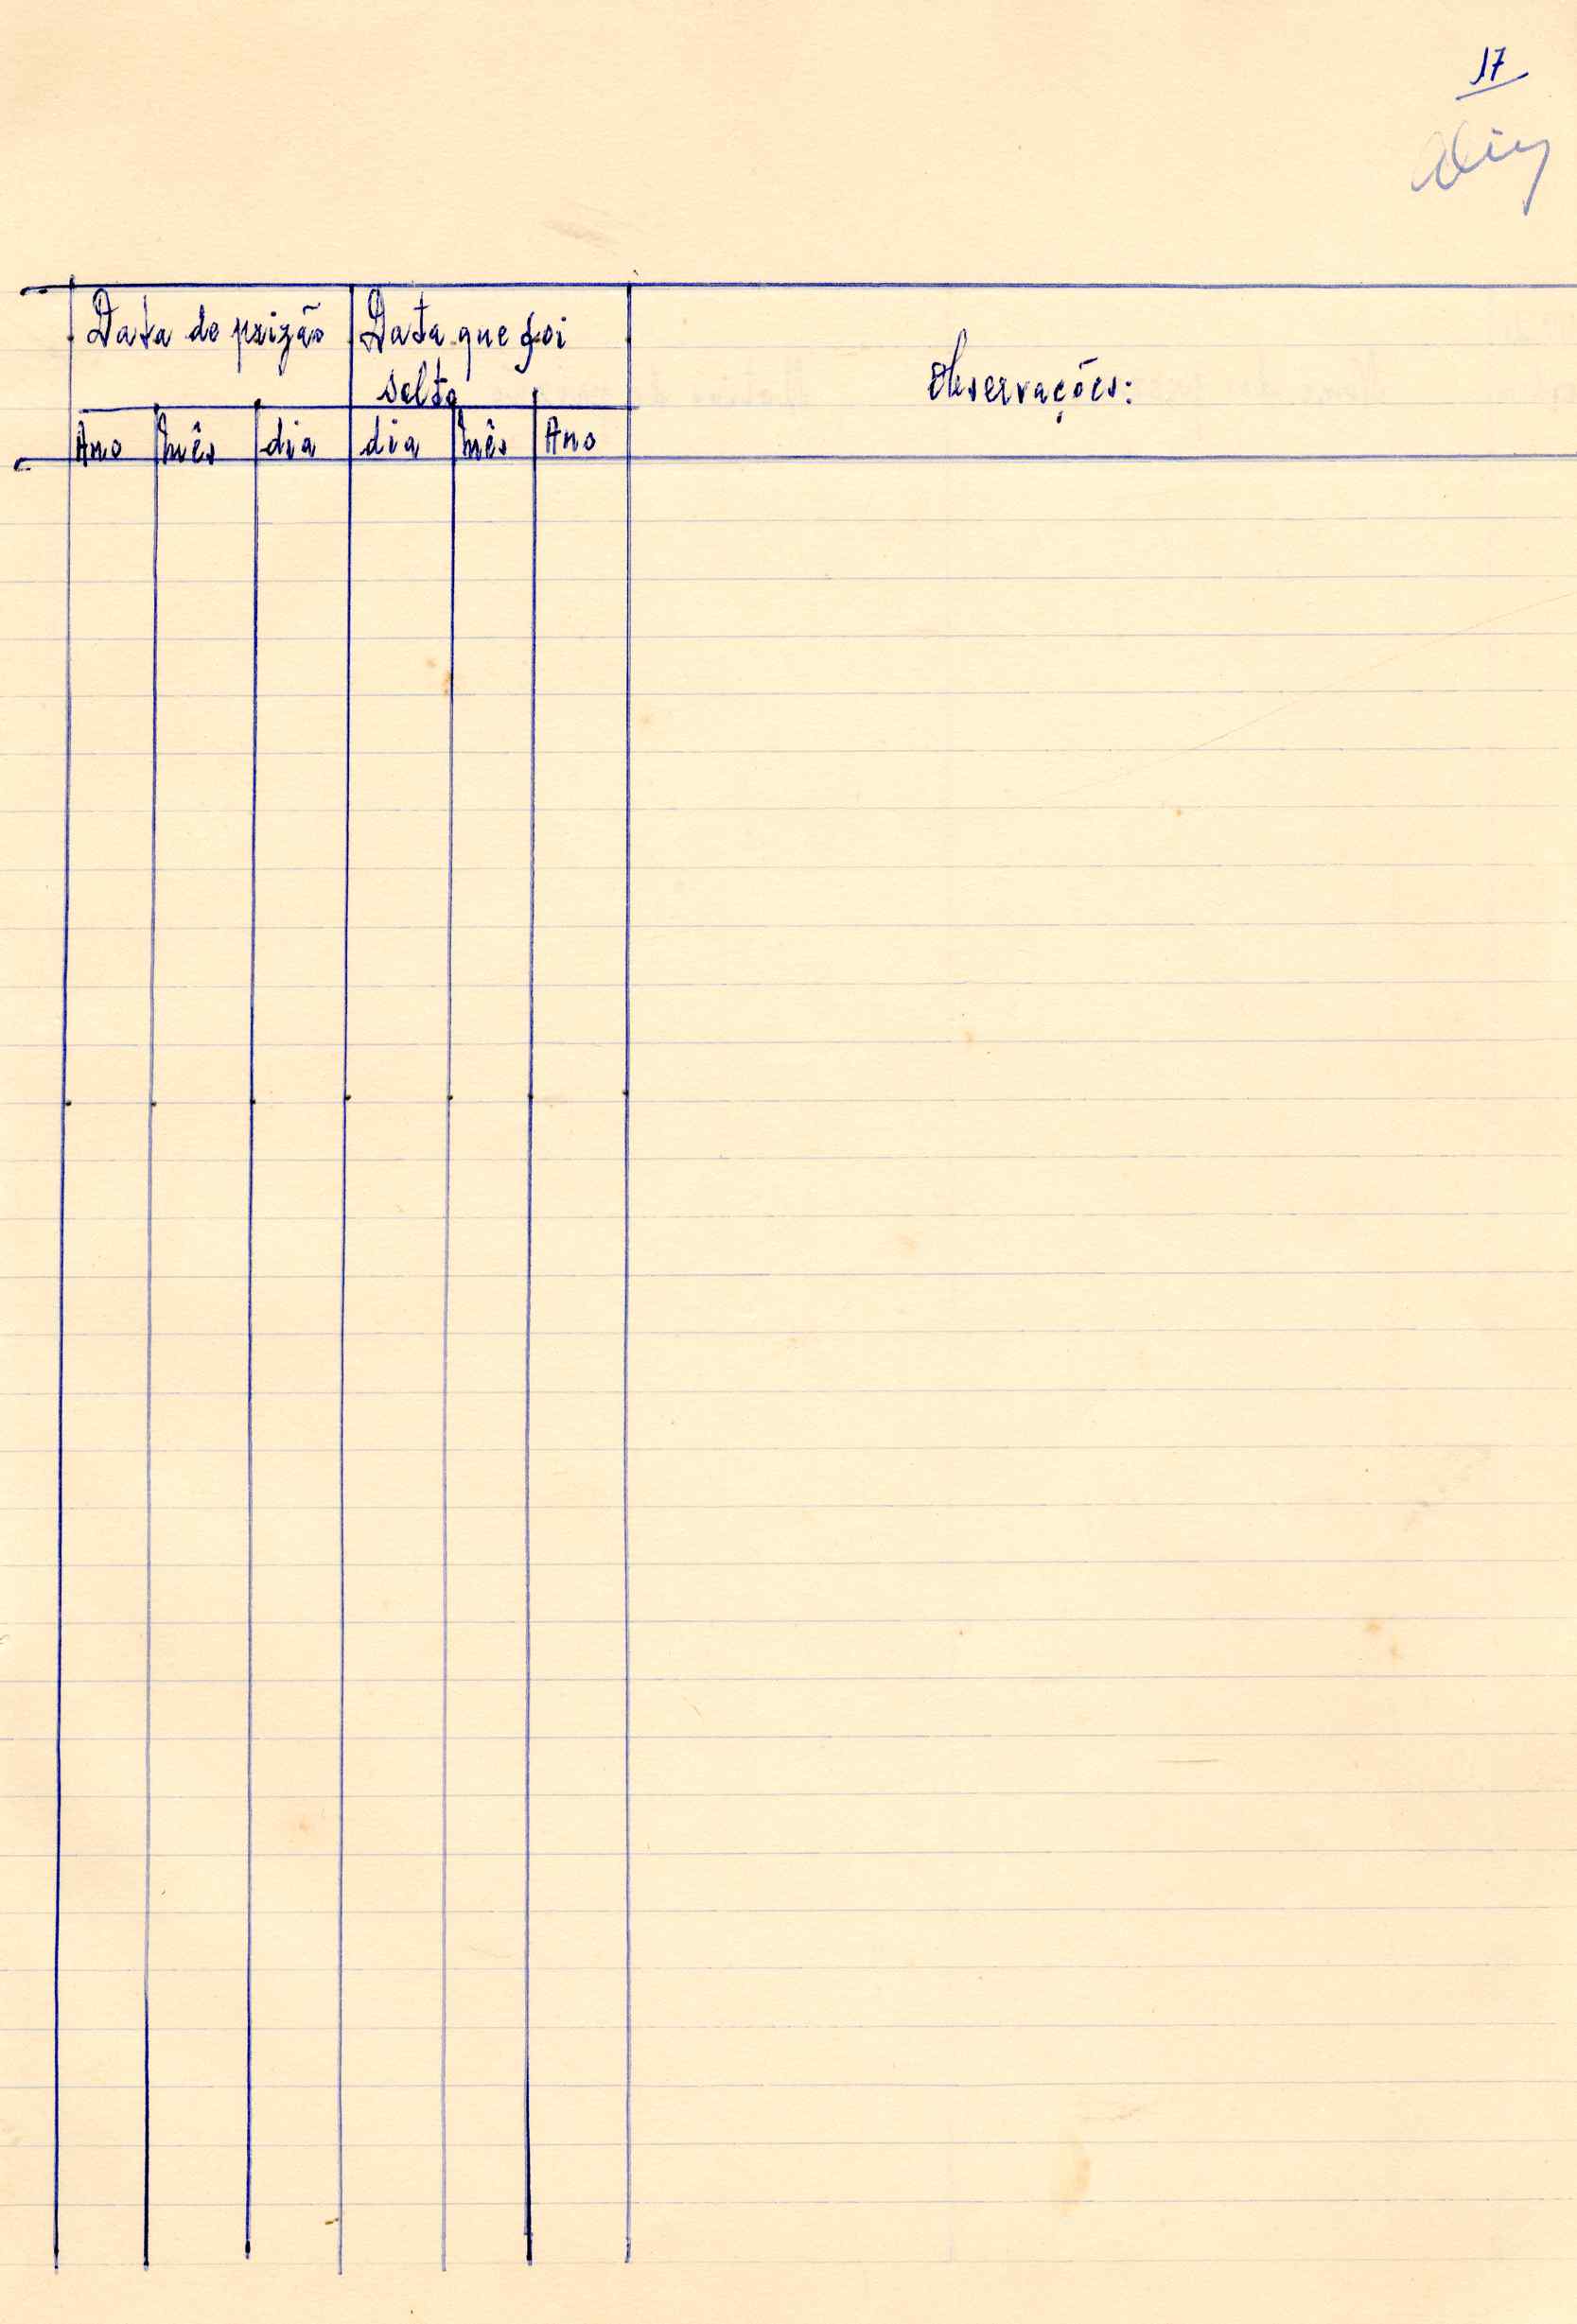 17
Data de prizão Data que foi
solto
Observações:
Ano Mês dia dia Mês Ano